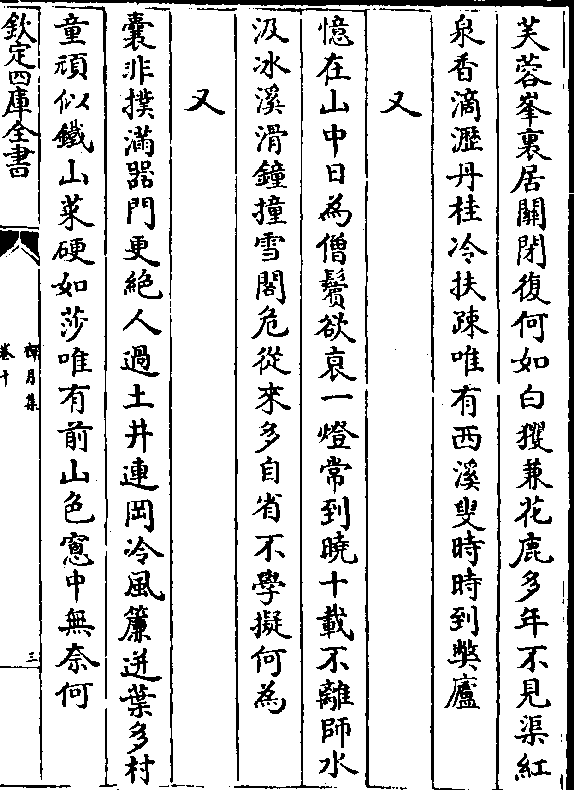 芙蓉峯裏居關閉復何如白玃兼花鹿多年不見渠紅
泉香滴瀝丹桂冷扶疎唯有西溪叟時時到弊廬
又
憶在山中日為僧鬢欲衰一燈常到曉十載不離師水
汲冰溪滑鐘撞雪閣危從來多自省不學擬何為
又
囊非撲滿器門更絕人過土井連岡冷風簾迸葉多村
童頑似鐵山菜硬如莎唯有前山色窻中無奈何
欽定四庫全書
禪月集
卷十
三